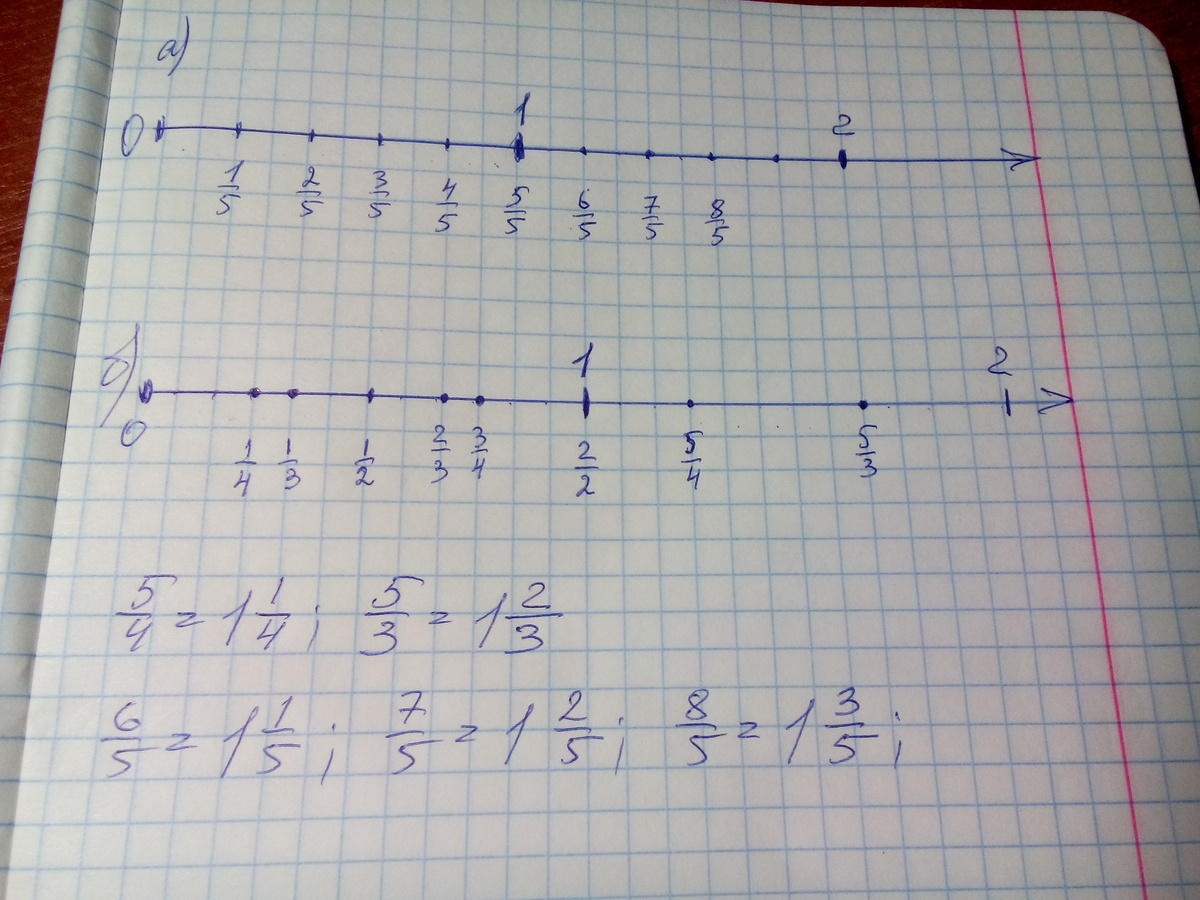 а)
0 1 2
1/5 2/5 3/5 4/5 5/5 6/5 7/5 8/5
б)
1 2
0 1/4 1/3 1/2 2/3 3/4 2/2 5/4 5/3
5/4 = 1 1/4 ; 5/3 = 1 2/3
6/5 = 1 1/5 ; 7/5 = 1 2/5 ; 8/5 = 1 3/5 ;